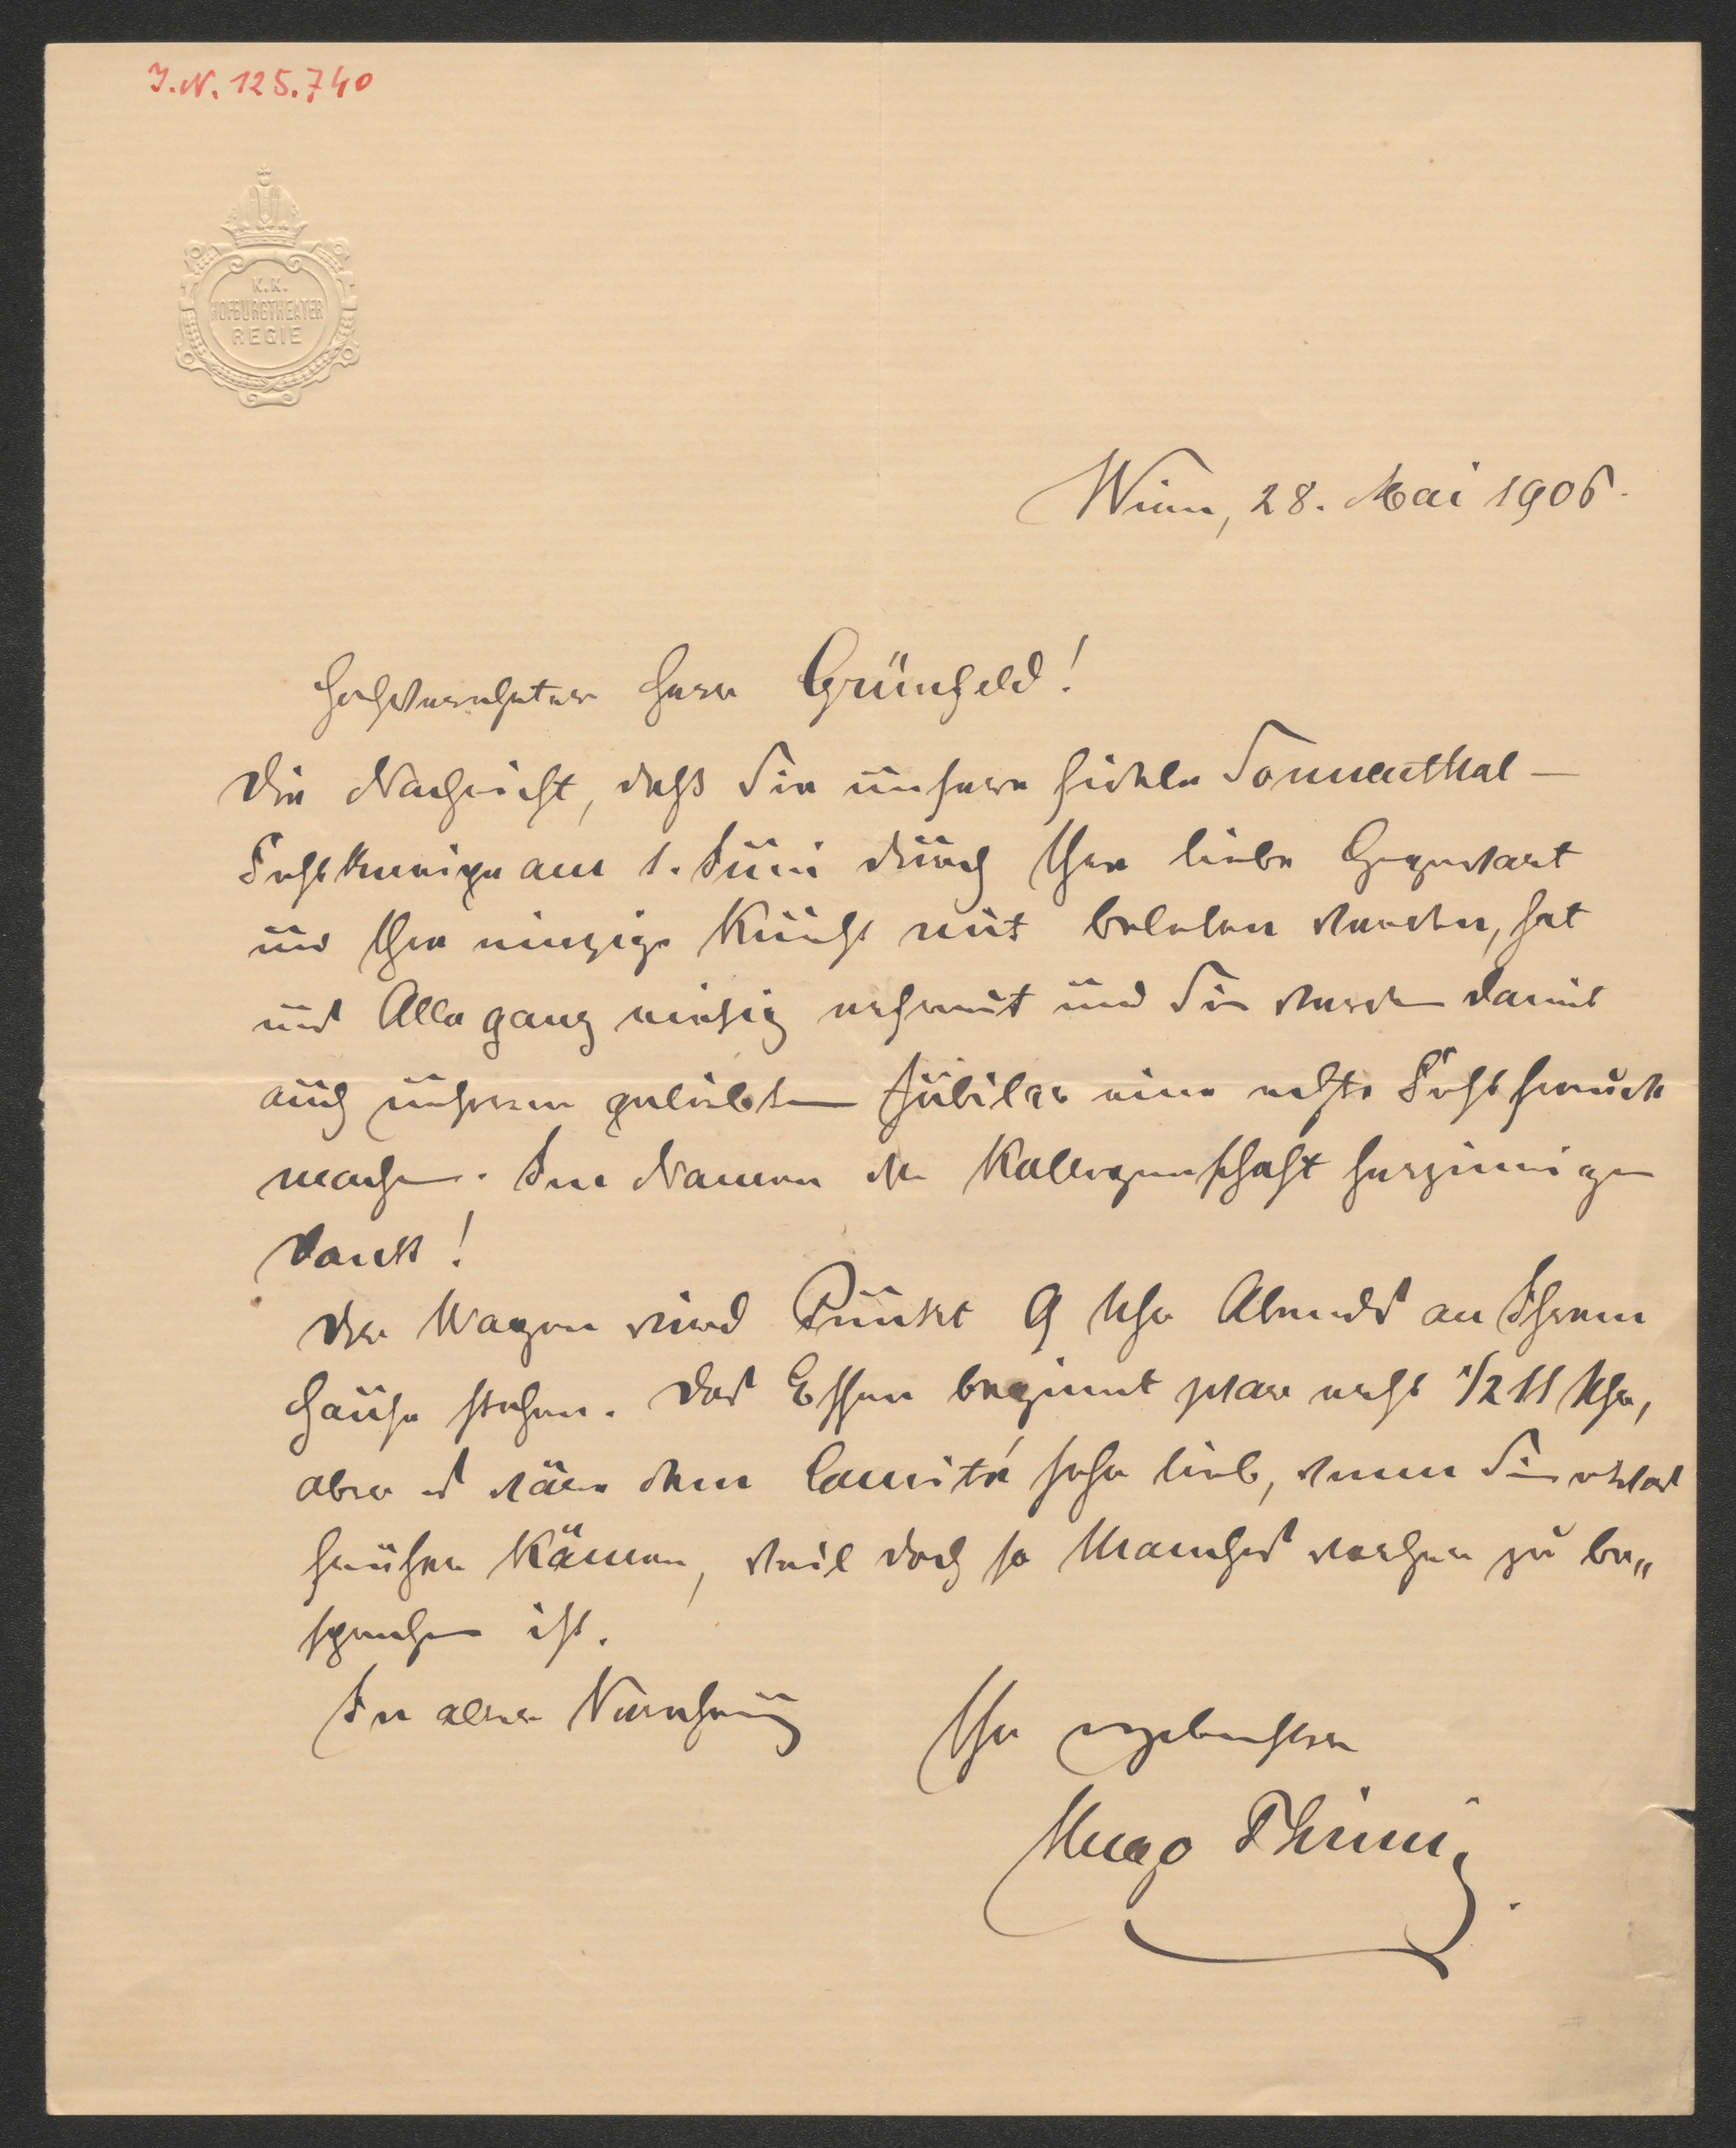 J.N. 125.740
K.K.
HOFBURGTHEATER
REGIE
Wien, 28. Mai 1906.
Hochverehrter Herr Grünfeld!
Die Nachricht, daß Sie unsere fidele Sonnenthal-
Festkneipe am 1. Juni durch Ihre liebe Gegenwart
und Ihre einzige Kunst mit beleben werden, hat
uns Alle ganz riesig erfreut und Sie werden damit
auch unserem geliebten Jubilar eine echte Festfreude
machen. Im Namen der Kollegenschaft herzinnigen
Dank!
Der Wagen wird Punkt 9 Uhr Abends an Ihrem
Hause stehen. Das Essen beginnt zwar erst 1/2 11 Uhr,
aber es wäre dem Comité sehr lieb, wenn Sie etwas
früher kämen, weil doch so Manches vorher zu be„
sprechen ist.
In alter Verehrung
Ihr ergebenster
Hugo Thimig.